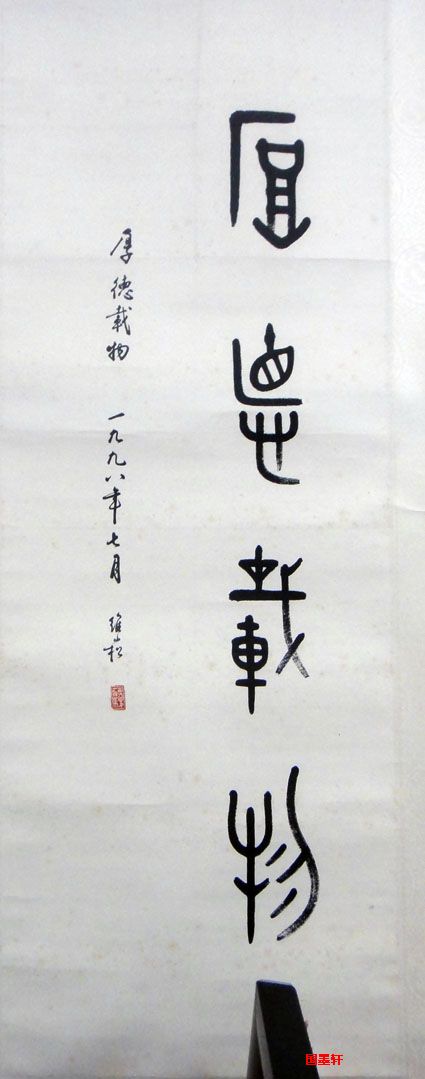 厚悳載物
厚德載物 一九九八年七月
国墨轩